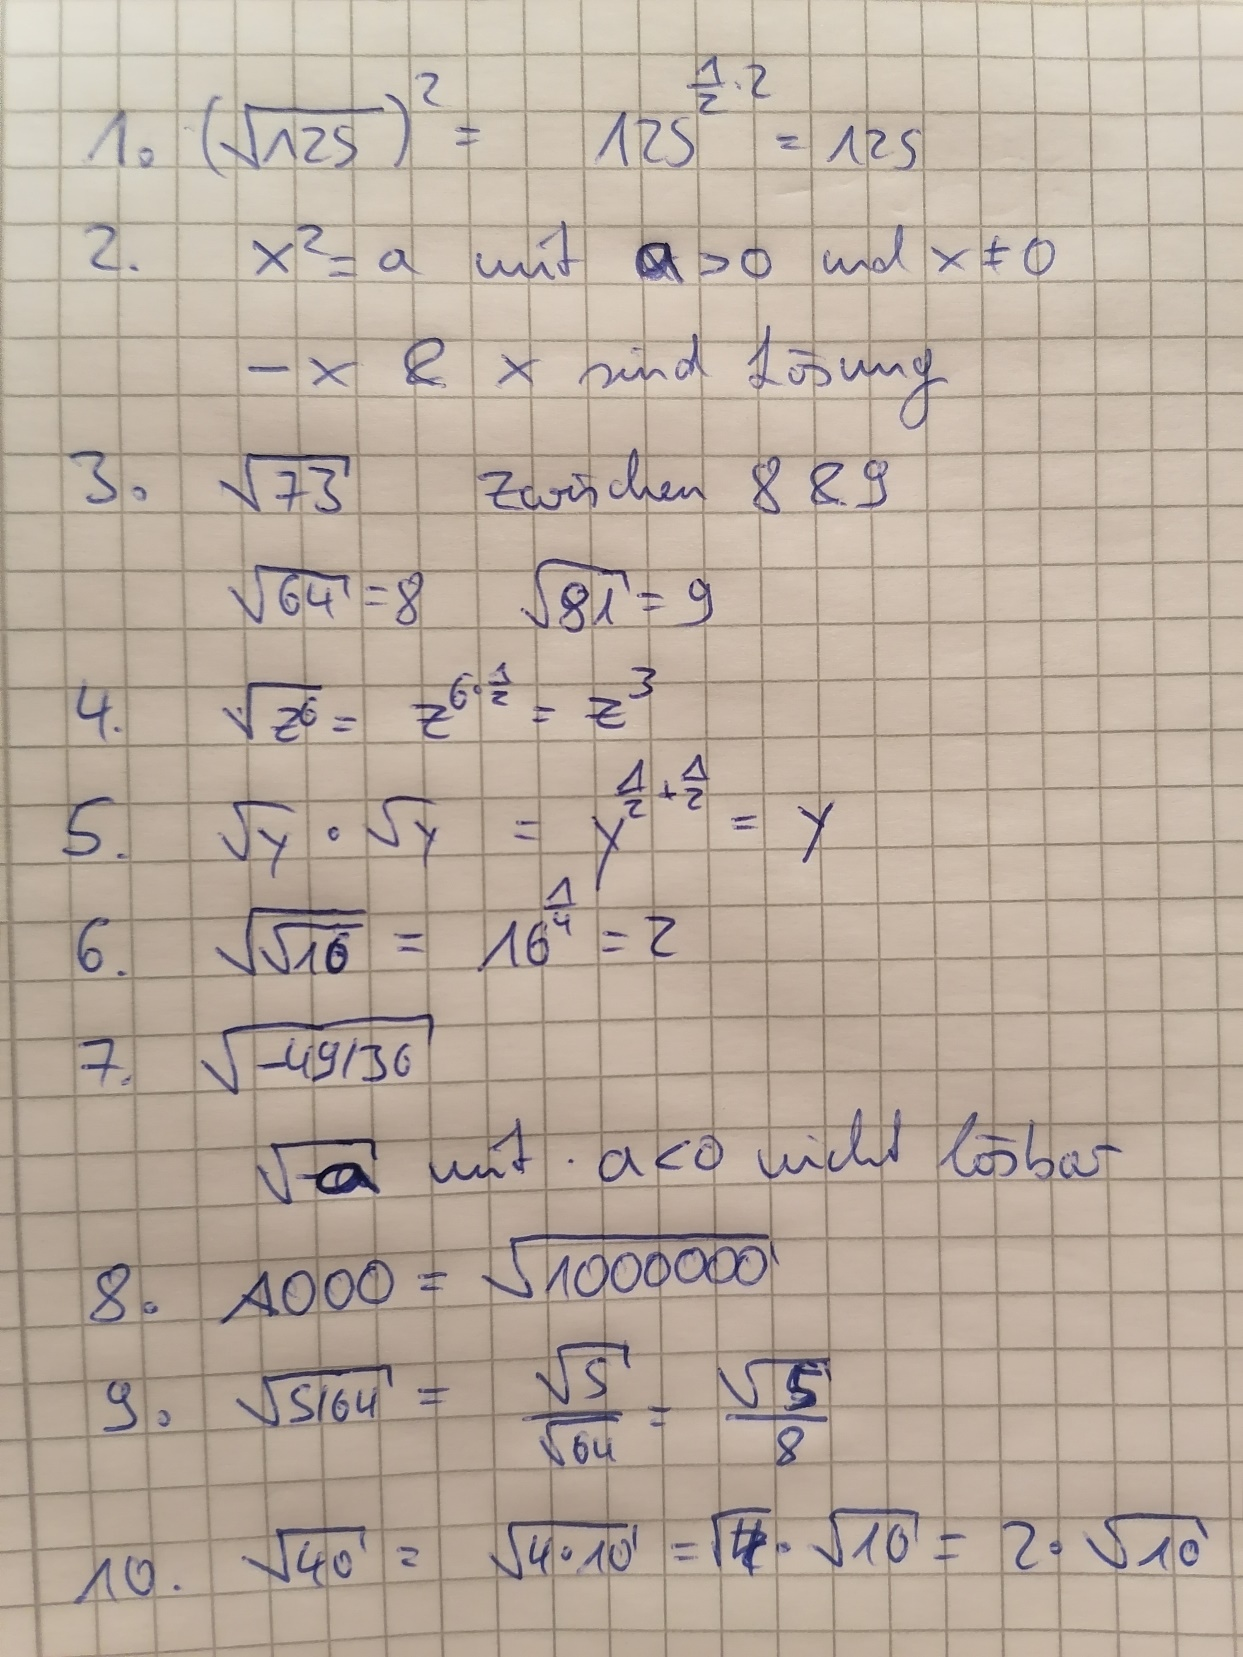 1. (√125)² = 125^(1/2 · 2) = 125
2. x² = a mit a > 0 und x ≠ 0
- x & x sind Lösung
3. √73 zwischen 8 & 9
√64 = 8 √81 = 9
4. √z⁶ = z^(6 · 1/2) = z³
5. √y · √y = y^(1/2 + 1/2) = y
6. √√16 = 16^(1/4) = 2
7. √-49/36
√a mit · a < 0 nicht lösbar
8. 1000 = √1000000
9. √5/64 = √5/√64 = √5/8
10. √40 = √4·10 = √4 · √10 = 2 · √10